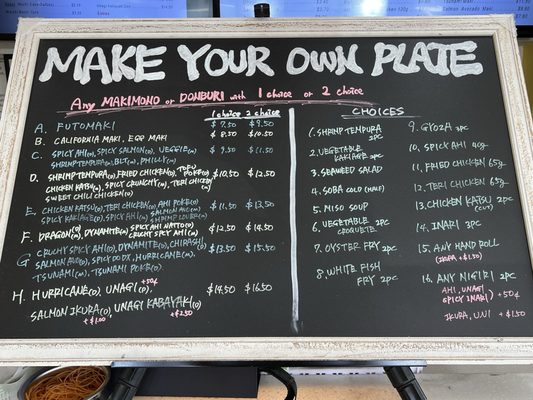 MAKE YOUR OWN PLATE
Any MAKIMONO or DONBURI with 1 choice or 2 choice
1 choice 2 choice
A. FUTOMAKI $7.50 $9.50
B. CALIFORNIA MAKI, EGG MAKI $8.50 $10.50
C. SPICY AHI(M), SPICY SALMON(M), VEGGIE(M) $9.50 $11.50
SHRIMP TEMPURA(M), BLT(M), PHILLY(M)
D. SHRIMP TEMPURA(D), FRIED CHICKEN(D), TOFU POKE(D) $10.50 $12.50
CHICKEN KATSU(D), SPICY CRUNCHY(M), TERI CHICKEN(D)
SWEET CHILI CHICKEN(D)
E. CHICKEN KATSU(D), TERI CHICKEN(D), AHI POKE(D) $11.50 $13.50
SPICY KAKIAGE(M), SPICY AHI(D), SALMON AHI(M)
F. DRAGON(M), DYNAMITE(M), SPICY AHI NATTO(D) $12.50 $14.50
CRUCHY SPICY AHI(D)
G CRUCHY SPICY AHI(D), DYNAMITE(D), CHIRASHI(D) $13.50 $15.50
SALMON AHI(D), SPICY DO DX, HURRICANE(M),
TSUNAMI(M), TSUNAMI POKE(D)
+50¢
H. HURRICANE(D), UNAGI(D), $14.50 $16.50
SALMON IKURA(D), UNAGI KABAYAKI(D)
+$1.00 +$2.50
CHOICES
1. SHRIMP TEMPURA
2PC
2. VEGETABLE
KAKIAGE 2PC
3. SEAWEED SALAD
4. SOBA COLD (HALF)
5. MISO SOUP
6. VEGETABLE 2PC
CROQUETTE
7. OYSTER FRY 2PC
8. WHITE FISH
FRY 2PC
9. GYOZA 3PC
10. SPICY AHI 40g
11. FRIED CHICKEN 65g
12. TERI CHICKEN 65g
13. CHICKEN KATSU 2PC
(CUT)
14. INARI 3PC
15. ANY HAND ROLL
(IKURA +$1.50)
16. ANY NIGIRI 2PC
AHI, UNAGI
SPICY INARI) +50¢
IKURA, UNI +$1.50